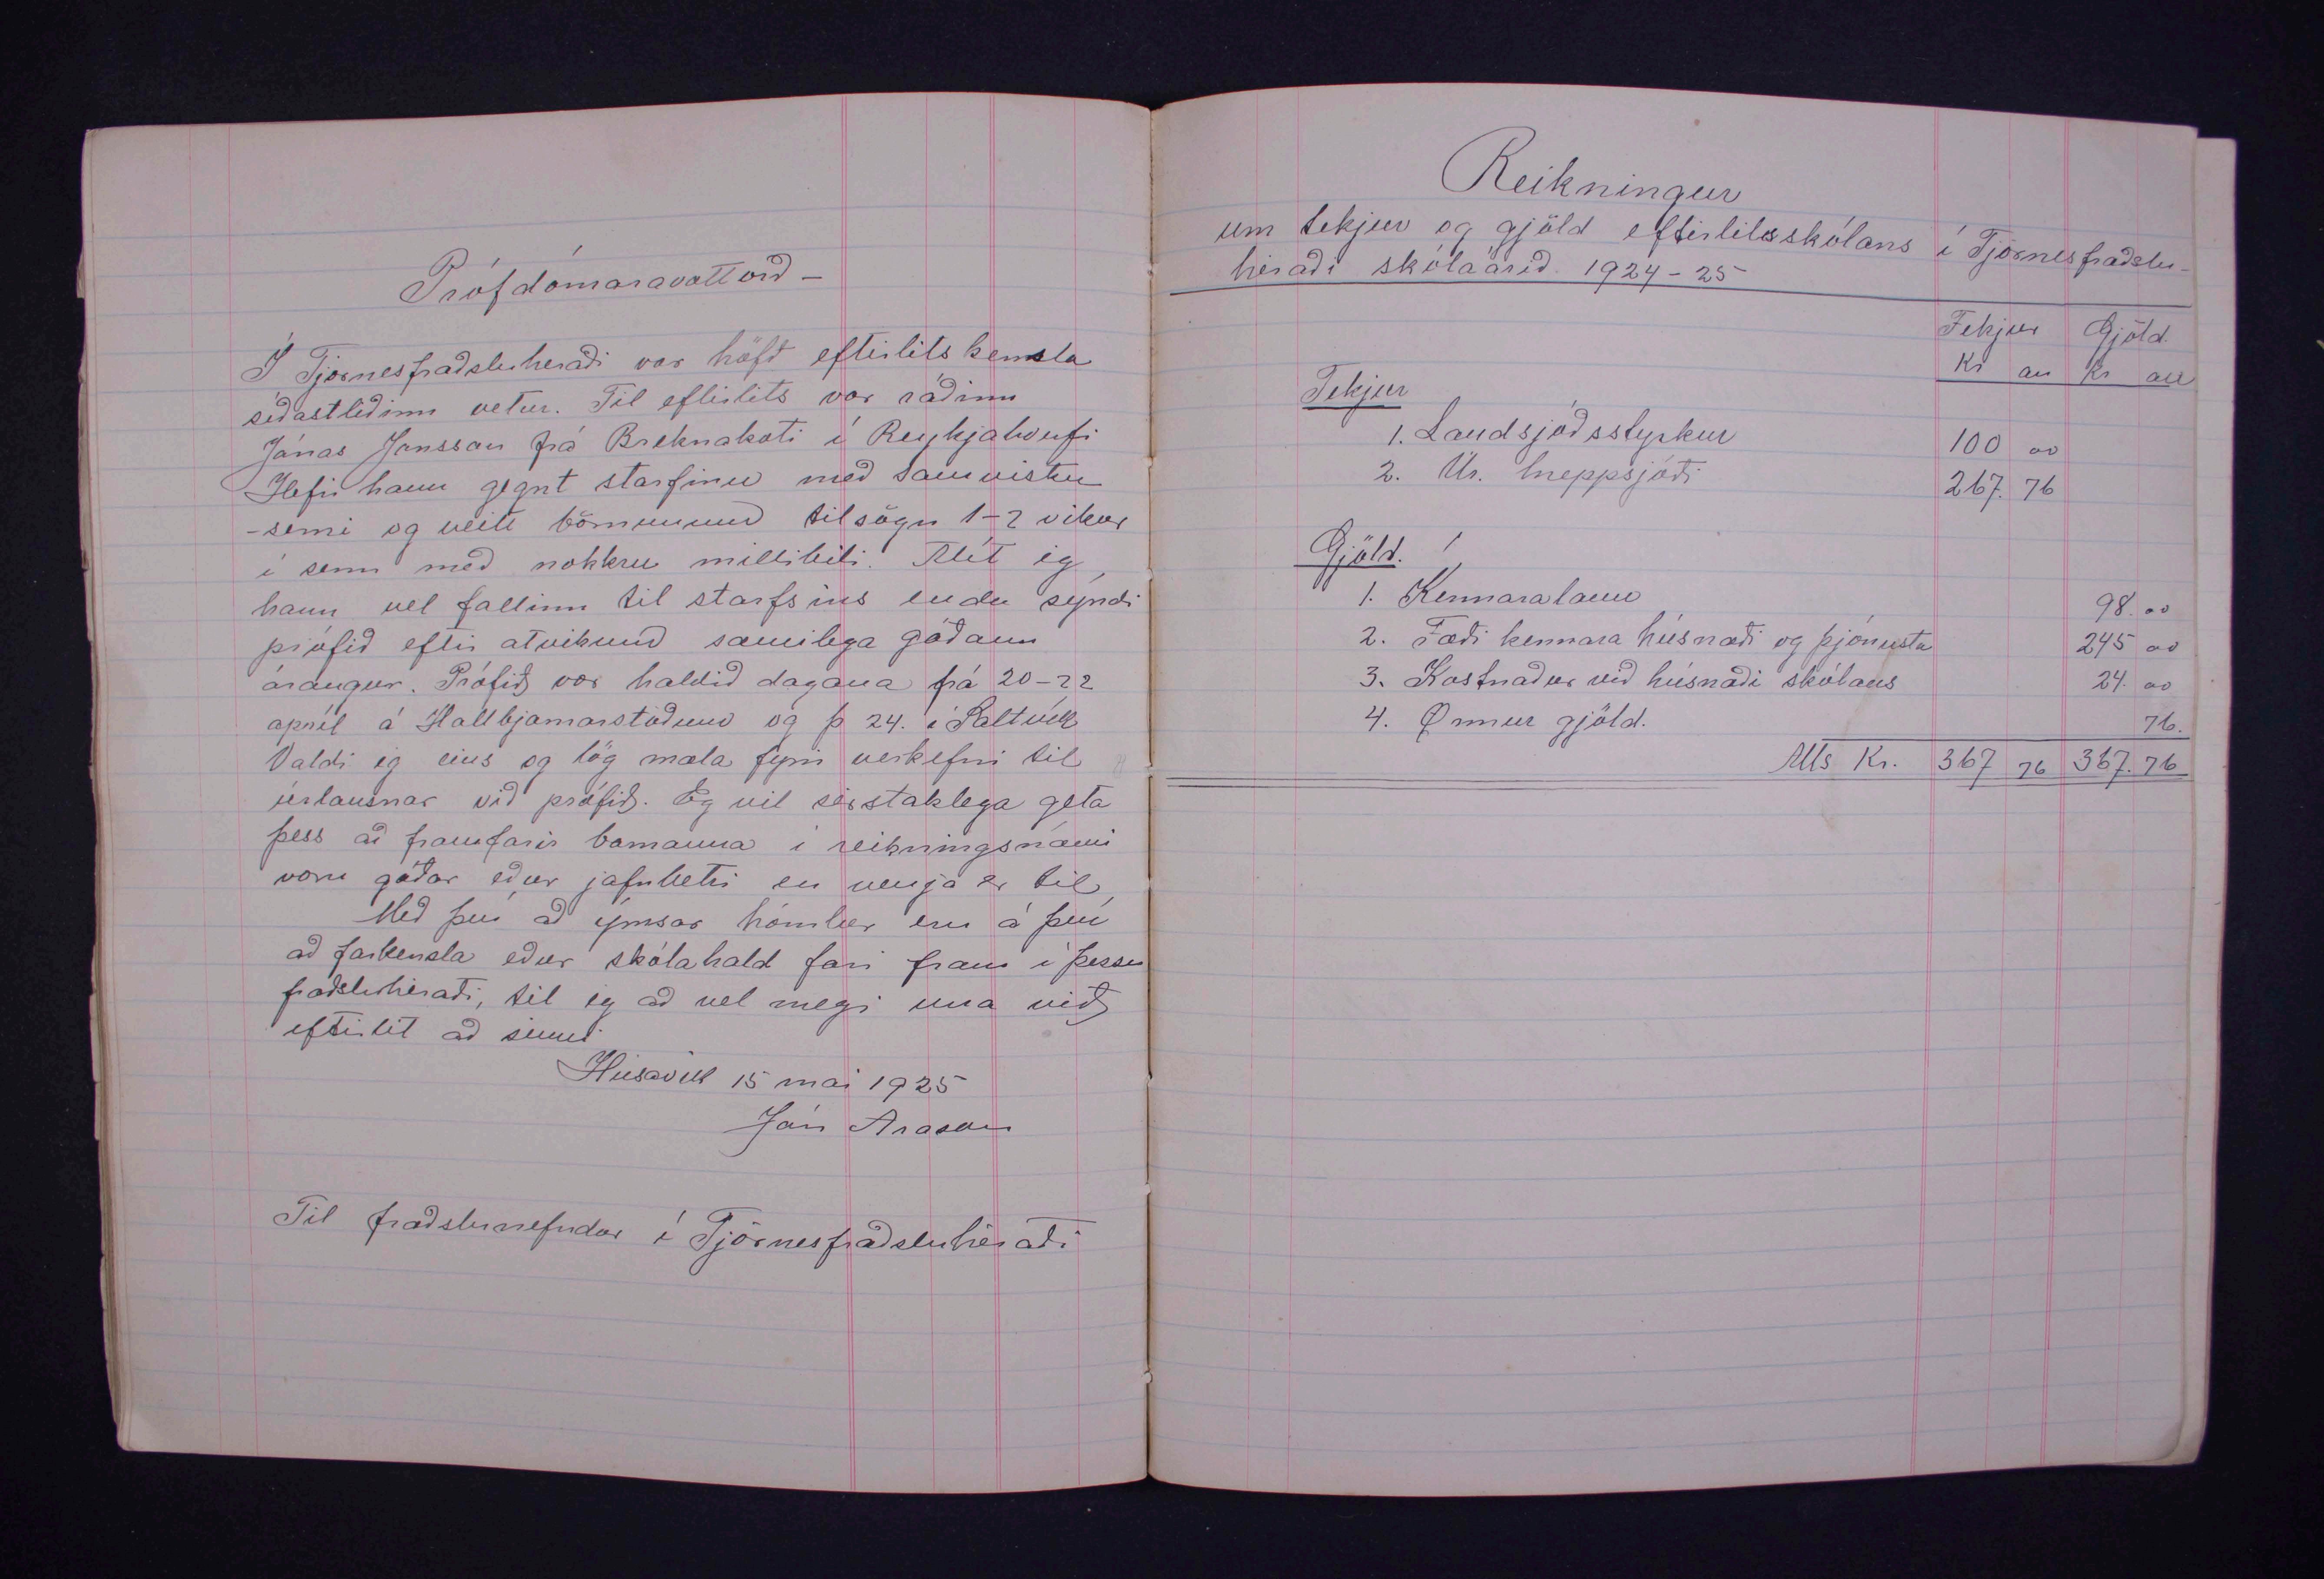 Prófdómaravottord -
Í Tjörnesfrædsluheraði var höfd eftirlitskensla
síðastliðinn vetur. Til eftirlits var ráðinn
Jónas Jónsson frá Breknakoti í Reykjahverfi
Hefir hann gegnt starfinu með samvisku
-semi og veitt börnunum tilsögn 1-2 vikur
í senn með nokkru millibili. Álít eg
hann vel fallinn til starfsins endu sýndi
prófið eftir atvikum sæmilega góðann
árangur. Prófið var haldið dagana frá 20-22
apríl á Hallbjarnarstöðum og þ 24. í Saltvík
Valdi eg eins og lög mæla fyrir verkefni til
úrlausnar við prófið. Eg vil sérstaklega geta
þess að framfarir barnanna í reikningsnámi
voru góðar eður jafnbetri en venja er til,
Með því að ýmsar hömlur eru á því
að farkensla eður skólahald fari fram í þessu
fræðsluhéraði, tel eg að vel megi una við
eftirlit að sinni
Húsavík 15 maí 1925
Jón Arason
Til fræðslunefndar í Tjörnesfræðsluhéraði
Reikningur
um tekjur og gjöld eftirlitsskólans í Tjörnesfræðslu-
héraði skólaárið 1924-25
Tekjur Gjöld.
Kr au Kr au
Tekjur
1. Landsjóðsstyrkur 100 00
2. Úr hreppsjóði 267. 76
Gjöld.
1. Kennaralaun 98. 00
2. Fæði kennara húsnæði og þjónusta 245 00
3. Kostnaður við húsnæði skólans 24. 00
4. Önnur gjöld. 76.
Alls Kr. 367 76 367. 76